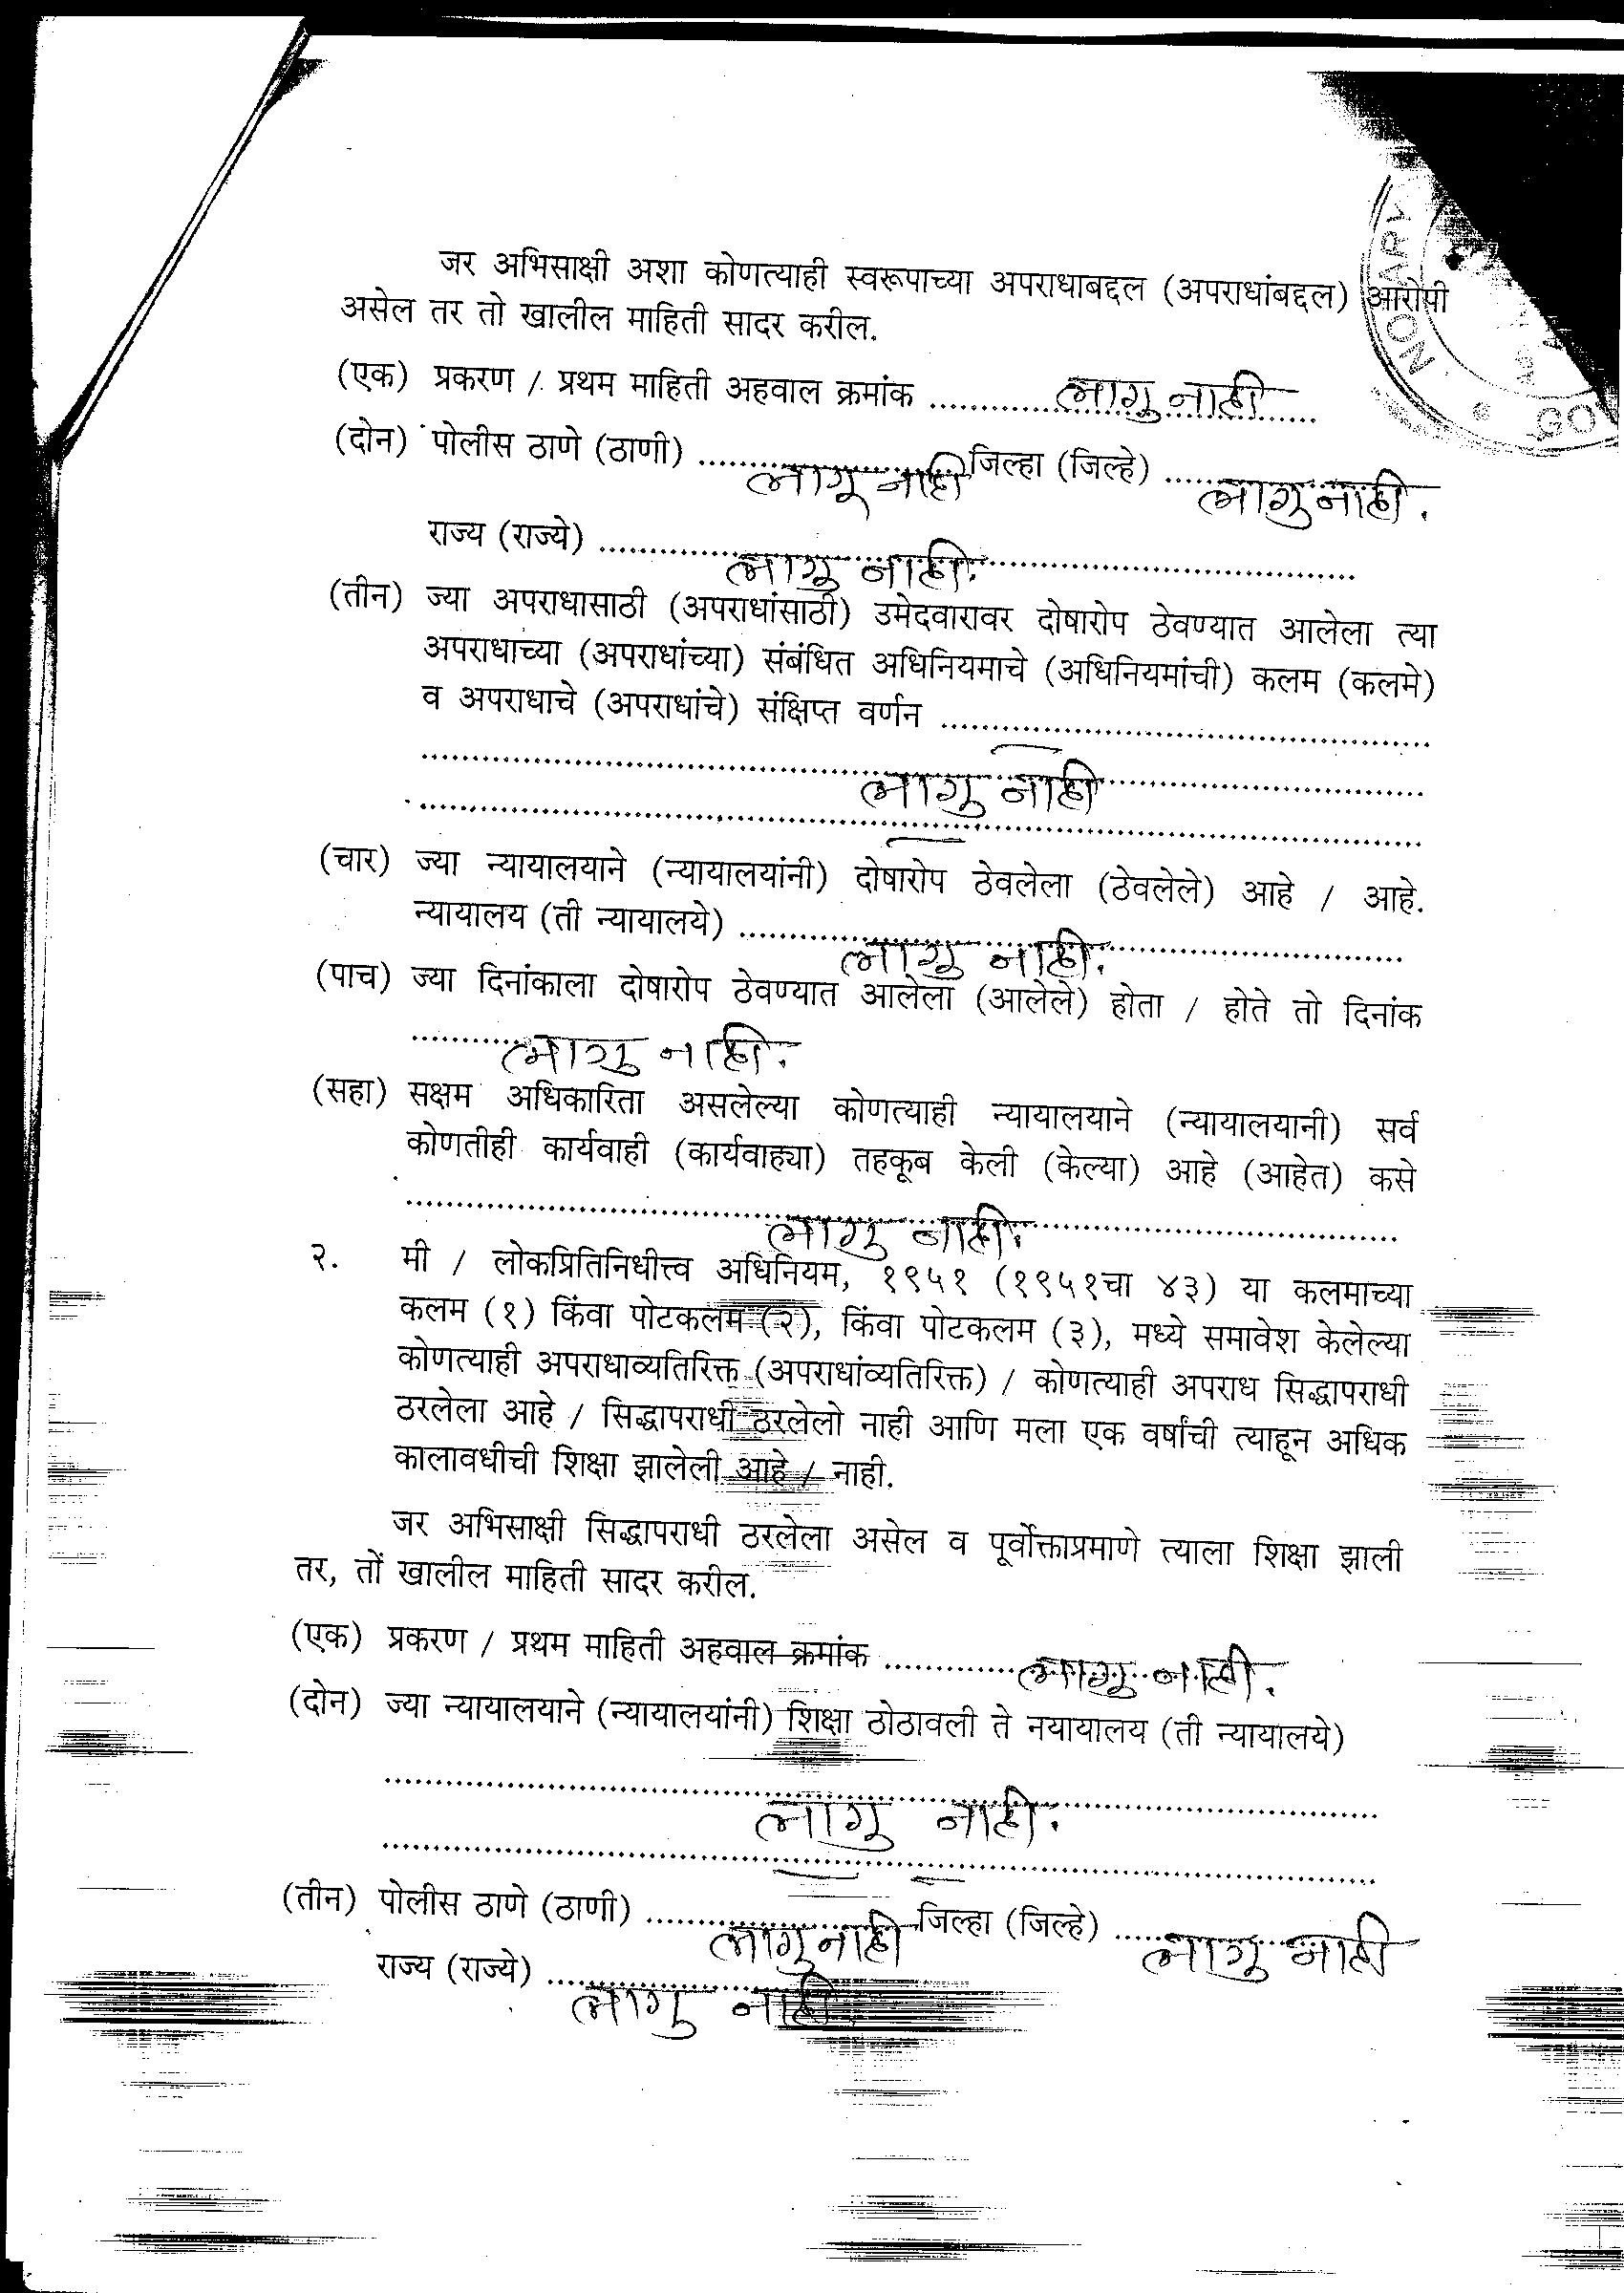 जर अभिसाक्षी अशा कोणत्याही स्वरूपाच्या अपराधाबद्दल (अपराधांबद्दल) आरोपी
असेल तर तो खालील माहिती सादर करील.
(एक) प्रकरण / प्रथम माहिती अहवाल क्रमांक .......... लागु नाही
(दोन) पोलीस ठाणे (ठाणी) .......... लागू नाही जिल्हा (जिल्हे) .......... लागु नाही.
राज्य (राज्ये) .......... लागु नाही.
(तीन) ज्या अपराधासाठी (अपराधांसाठी) उमेदवारावर दोषारोप ठेवण्यात आलेला त्या
अपराधाच्या (अपराधांच्या) संबंधित अधिनियमाचे (अधिनियमांची) कलम (कलमे)
व अपराधाचे (अपराधांचे) संक्षिप्त वर्णन ..........
लागु नाही
(चार) ज्या न्यायालयाने (न्यायालयांनी) दोषारोप ठेवलेला (ठेवलेले) आहे / आहे.
न्यायालय (ती न्यायालये) .......... लागु नाही.
(पाच) ज्या दिनांकाला दोषारोप ठेवण्यात आलेला (आलेले) होता / होते तो दिनांक
.......... लागु नाही.
(सहा) सक्षम अधिकारिता असलेल्या कोणत्याही न्यायालयाने (न्यायालयानी) सर्व
कोणतीही कार्यवाही (कार्यवाह्या) तहकूब केली (केल्या) आहे (आहेत) कसे
.......... लागु नाही.
२. मी / लोकप्रितिनिधीत्त्व अधिनियम, १९५१ (१९५१चा ४३) या कलमाच्या
कलम (१) किंवा पोटकलम (२), किंवा पोटकलम (३), मध्ये समावेश केलेल्या
कोणत्याही अपराधाव्यतिरिक्त (अपराधांव्यतिरिक्त) / कोणत्याही अपराध सिद्धापराधी
ठरलेला आहे / सिद्धापराधी ठरलेलो नाही आणि मला एक वर्षांची त्याहून अधिक
कालावधीची शिक्षा झालेली आहे / नाही.
जर अभिसाक्षी सिद्धापराधी ठरलेला असेल व पूर्वोक्ताप्रमाणे त्याला शिक्षा झाली
तर, तों खालील माहिती सादर करील.
(एक) प्रकरण / प्रथम माहिती अहवाल क्रमांक .......... लागु नाही.
(दोन) ज्या न्यायालयाने (न्यायालयांनी) शिक्षा ठोठावली ते नयायालय (ती न्यायालये)
.......... लागु नाही.
(तीन) पोलीस ठाणे (ठाणी) .......... लागु नाही जिल्हा (जिल्हे) .......... लागु नाही
राज्य (राज्ये) .......... लागु नाही
NOTARY